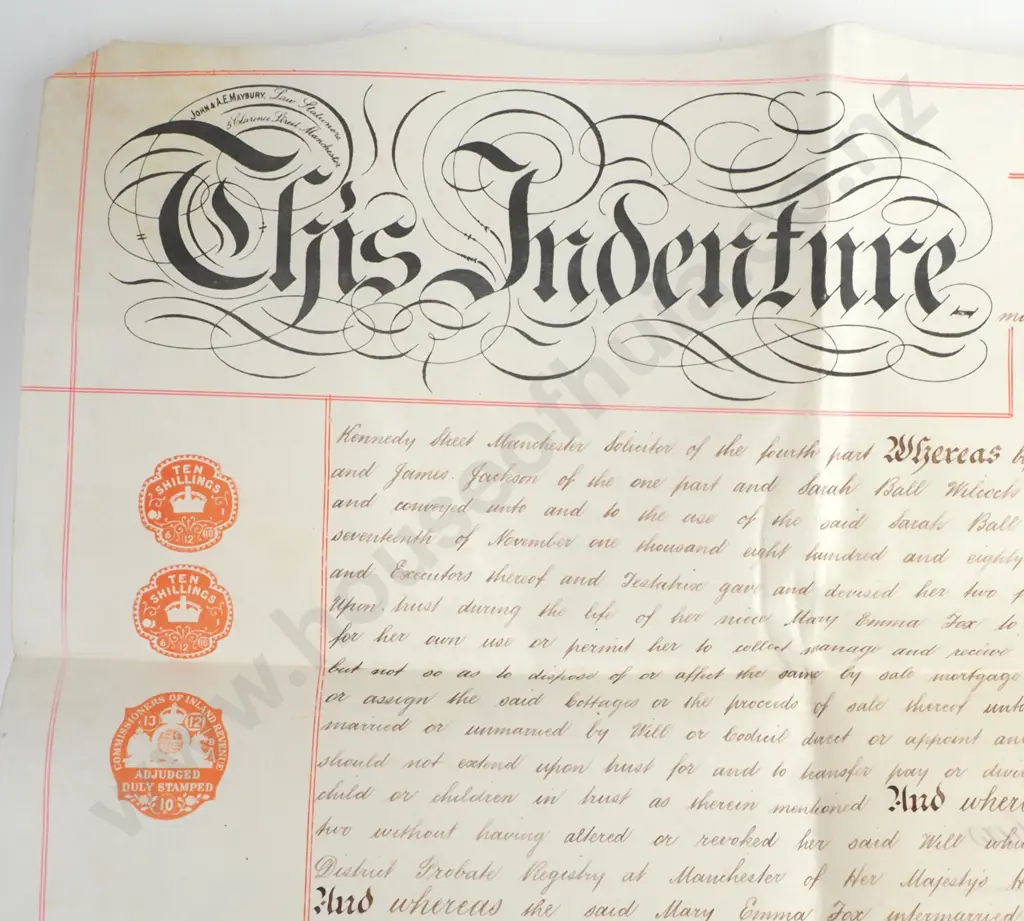 JOHN & A.E. MAYBURY, Law Stationers
5 Clarence Street Manchester
This Indenture
Kennedy Street Manchester Solicitor of the fourth part Whereas
and James Jackson of the one part and Sarah Ball Wilcock
and conveyed unto and to the use of the said Sarah Ball
seventeenth of November one thousand eight hundred and eighty
and Executors thereof and Testatrix gave and devised her two
Upon trust during the life of her niece Mary Emma Fox to
for her own use or permit her to collect manage and receive
but not so as to dispose of or affect the same by sale mortgage
or assign the said Cottages or the proceeds of sale thereof unto
married or unmarried by Will or Codicil direct or appoint and
should not extend upon trust for and to transfer pay or
child or children in trust as therein mentioned And
two without having altered or revoked her said Will
District Probate Registry at Manchester of Her Majesty's
And whereas the said Mary Emma Fox intermarried
TEN SHILLINGS
6 12 00
TEN SHILLINGS
6 12 00
COMMISSIONERS OF INLAND REVENUE
13 12
ADJUDGED
DULY STAMPED
10
www.houseofhuia.co.nz